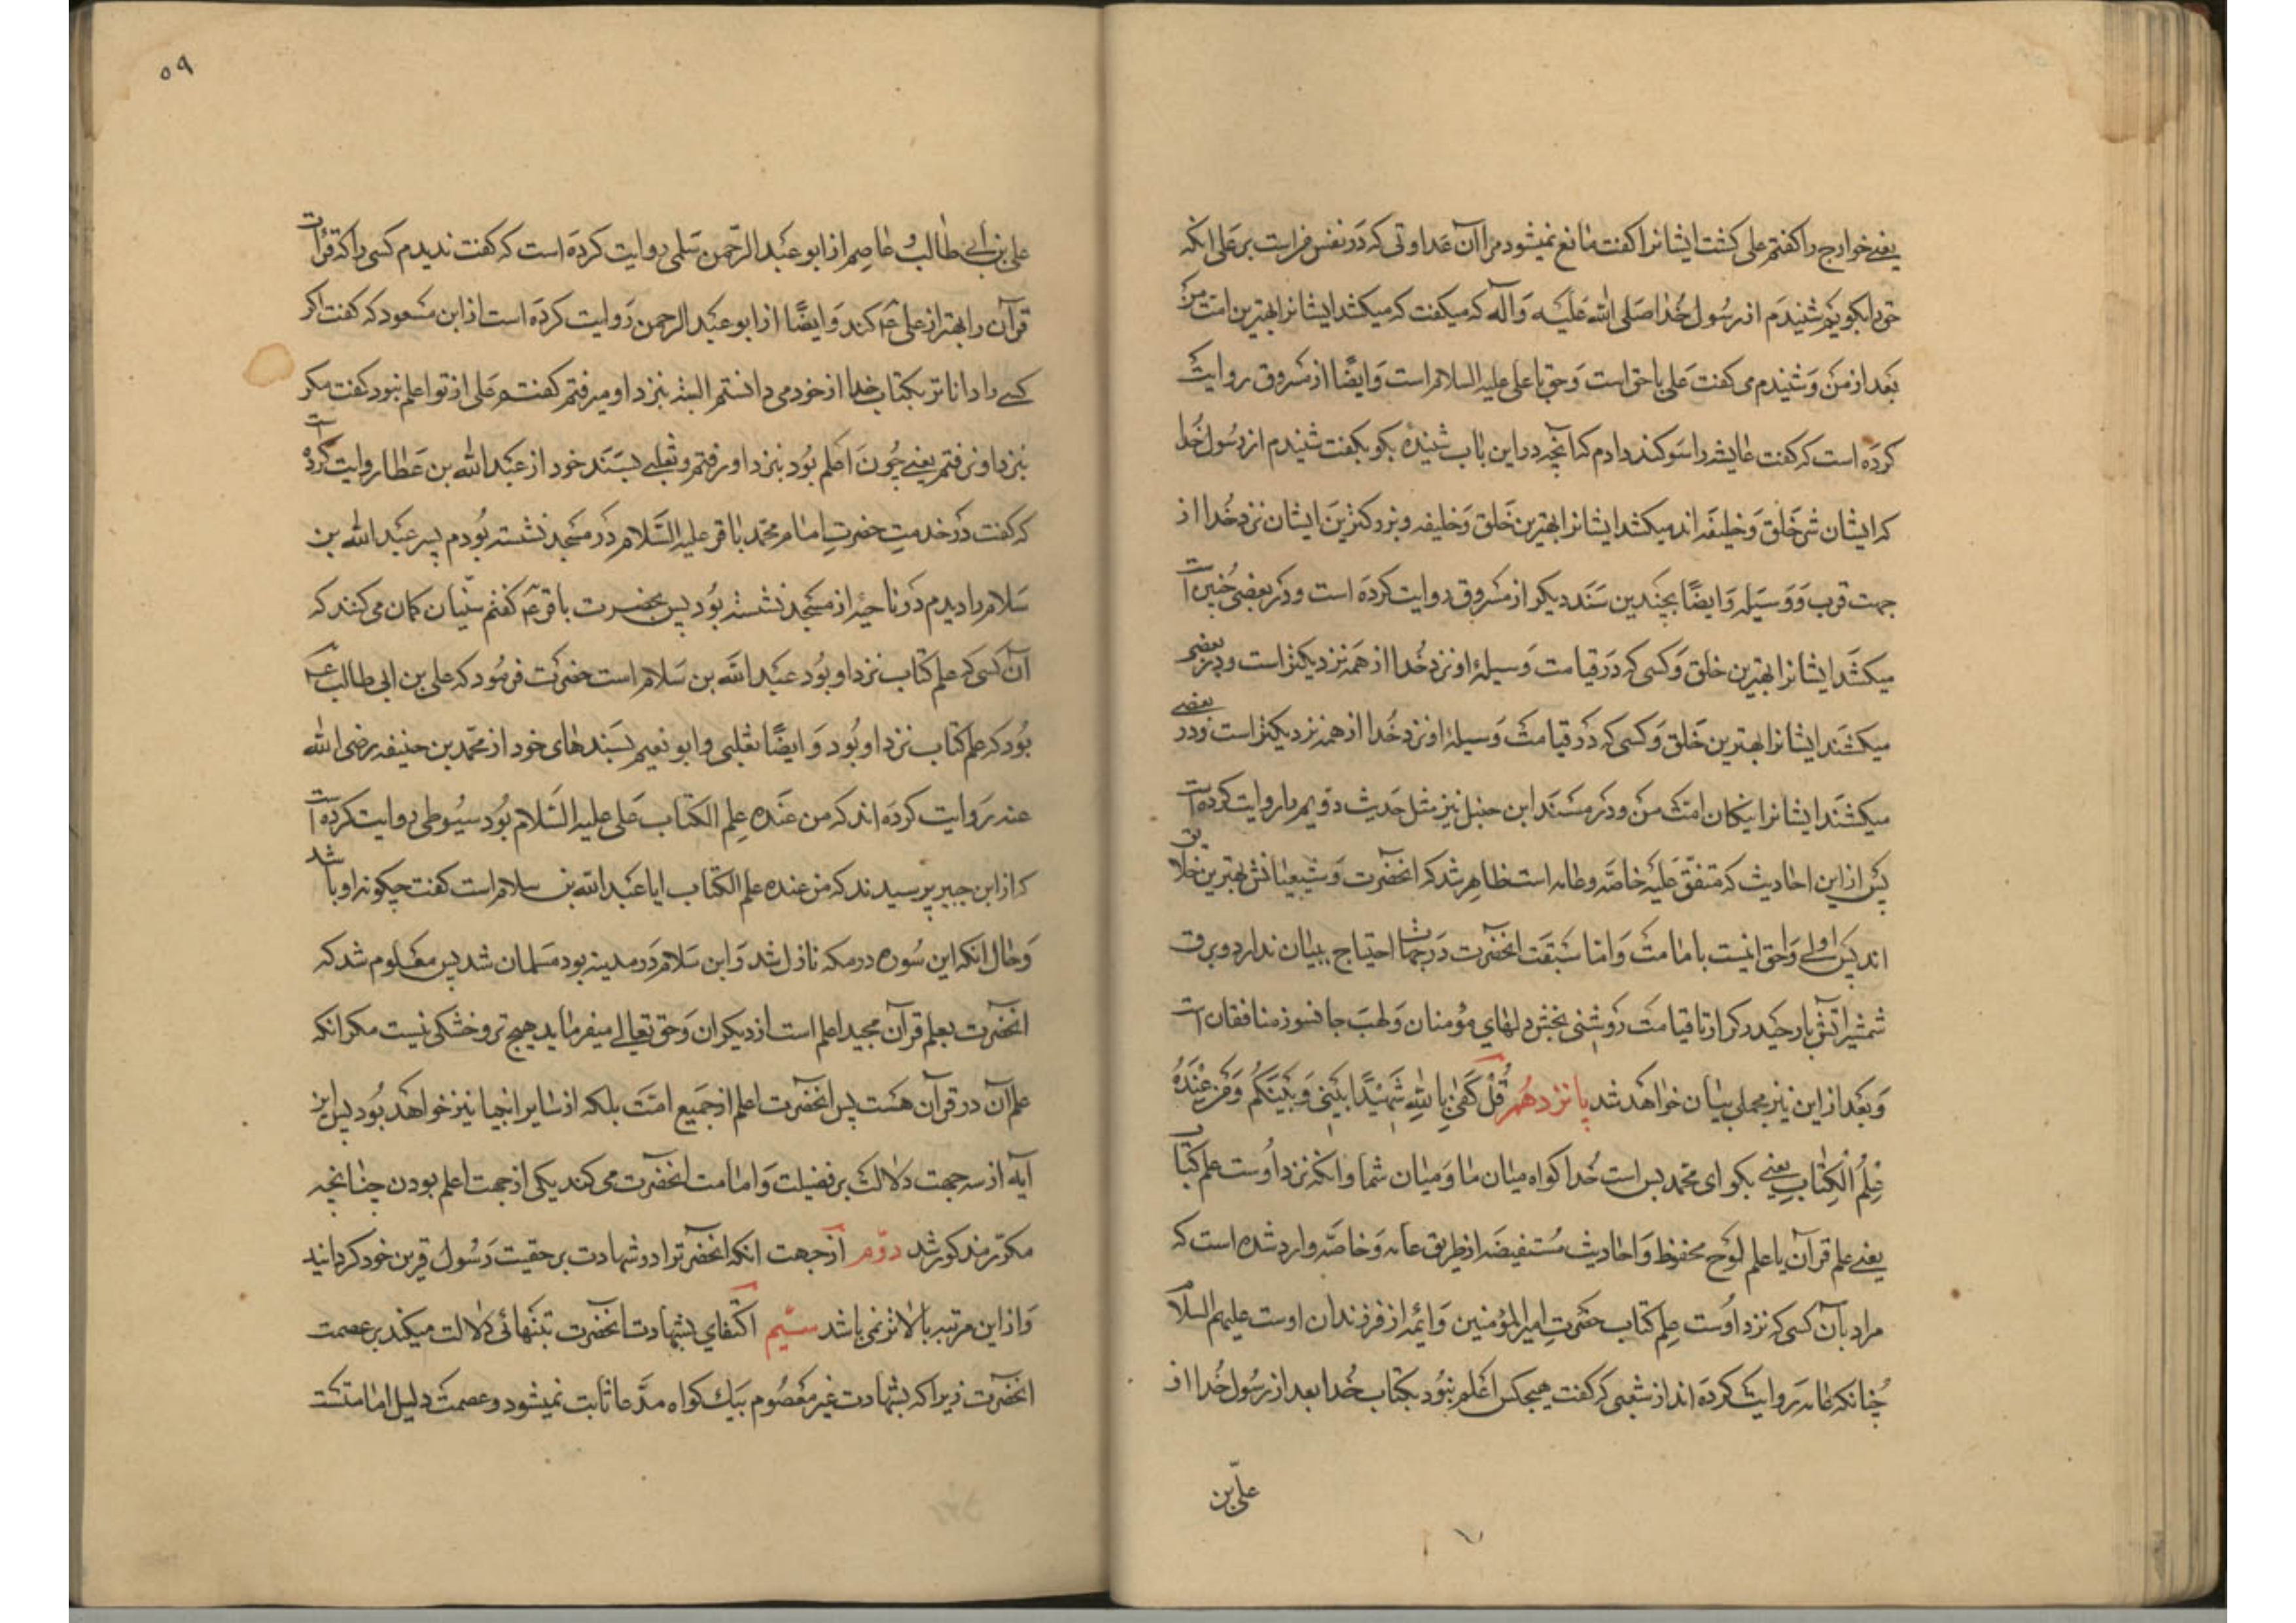 یعنی خوارج را کفتم علی کشت ایشانرا کفت مانع نمیشود مرا آن عداوتی که در نفس مراست بر علی انکه
حق را بکویم شنیدم از رسول خدا صلی الله علیه وآله که میکفت که میکشد ایشانرا بهترین امت من
بعد از من و شنیدم می کفت علی با حق است و حق با علی علیه السلام است و ایضًا از مسروق روایت
کرده است که کفت عایشه را سوکند دادم که آنچه در این باب شنیدهٔ بکو بکفت شنیدم از رسول خدا
که ایشان شر خلق و خلیفه اند میکشد ایشانرا بهترین خلق و خلیفه و نزدیکترین ایشان نزد خدا از
جهت قرب و وسیله و ایضًا بچندین سند دیکر از مسروق روایت کرده است و در بعضی چنین است
میکشد ایشانرا بهترین خلق و کسی که در قیامت وسیلهٔ او نزد خدا از همه نزدیکتر است و در بعضی
میکشند ایشانرا بهترین خلق و کسی که در قیامت وسیلهٔ او نزد خدا از همه نزدیکتر است و در بعضی
میکشند ایشانرا نیکان امت من و در مسند ابن حنبل نیز مثل حدیث دویم را روایت کرده است
پس از این احادیث که متفق علیه خاصه و عامه است ظاهر شد که انحضرت و شیعیانش بهترین خلایق
اند پس اولی و احق انیست بامامت و اما سبقت انحضرت در جهاد احتیاج ببیان ندارد و برق
شمشیر آتش بار حیدر کرار تا قیامت روشنی بخش دلهای مؤمنان و لهب جانسوز منافقان است
و بعد از این نیز مجملی بیان خواهد شد پانزدهم قُلْ کَفٰی بِاللّٰهِ شَهِیْدًا بَیْنِی وَبَیْنَکُمْ وَمَنْ عِنْدَهُ
عِلْمُ الْکِتٰابِ یعنی بکو ای محمد بس است خدا کواه میان ما و میان شما و انکه نزد اوست علم کتاب
یعنی علم قرآن یا علم لوح محفوظ و احادیث مستفیضه از طریق عامه و خاصه وارد شده است که
مراد بآن کسی که نزد اوست علم کتاب حضرت امیر المؤمنین و ائمه از فرزندان اوست علیهم السلام
چنانکه عامه روایت کرده اند از شعبی که کفت هیچکس اعلم نبود بکتاب خدا بعد از رسول خدا از
علی بن
۵۹
علی بن ابی طالب و عاصم از ابو عبد الرحمن سلمی روایت کرده است که کفت ندیدم کسی را که قرأت
قرآن را بهتر از علی ع کند و ایضًا از ابو عبد الرحمن روایت کرده است از ابن مسعود که کفت اکر
کسی را داناتر بکتاب خدا از خود می دانستم البته بنزد او میرفتم کفتم علی از تو اعلم نبود کفت مکر
بنزد او نرفتم یعنی چون اعلم بود بنزد او رفتم و ثعلبی بسند خود از عبد الله بن عطا روایت کرده است
که کفت در خدمت حضرت امام محمد باقر علیه السلام در مسجد نشسته بودم پسر عبد الله بن
سلام را دیدم در ناحیه از مسجد نشسته بود پس بحضرت باقر ع کفتم سنیان کمان می کنند که
آن کسی که علم کتاب نزد او بود عبد الله بن سلام است حضرت فرمود که علی بن ابی طالب ع
بود که علم کتاب نزد او بود و ایضًا ثعلبی و ابو نعیم بسندهای خود از محمد بن حنیفه رضی الله
عنه روایت کرده اند که من عنده علم الکتاب علی علیه السلام بود سیوطی روایت کرده است
که از ابن جبیر پرسیدند که من عنده علم الکتاب ایا عبد الله بن سلام است کفت چکونه او باشد
و حال انکه این سوره در مکه نازل شد و ابن سلام در مدینه بود مسلمان شد پس معلوم شد که
انحضرت بعلم قرآن مجید اعلم است از دیکران و حق تعالی میفرماید هیچ تر و خشکی نیست مکر انکه
علم آن در قرآن هست پس انحضرت اعلم از جمیع امت بلکه از سایر انبیا نیز خواهد بود پس این
آیه از سه جهت دلالت بر فضیلت و امامت انحضرت می کند یکی از جهت اعلم بودن چنانچه
مکرر مذکور شد دوّم از جهت انکه انحضرترا در شهادت بر حقیت رسول قرین خود کردانید
و از این مرتبه بالاتر نمی باشد سیّم اکتفای بشهادت انحضرت بتنهائی دلالت میکند بر عصمت
انحضرت زیرا که بشهادت غیر معصوم بیک کواه مدعا ثابت نمیشود و عصمت دلیل امامتست